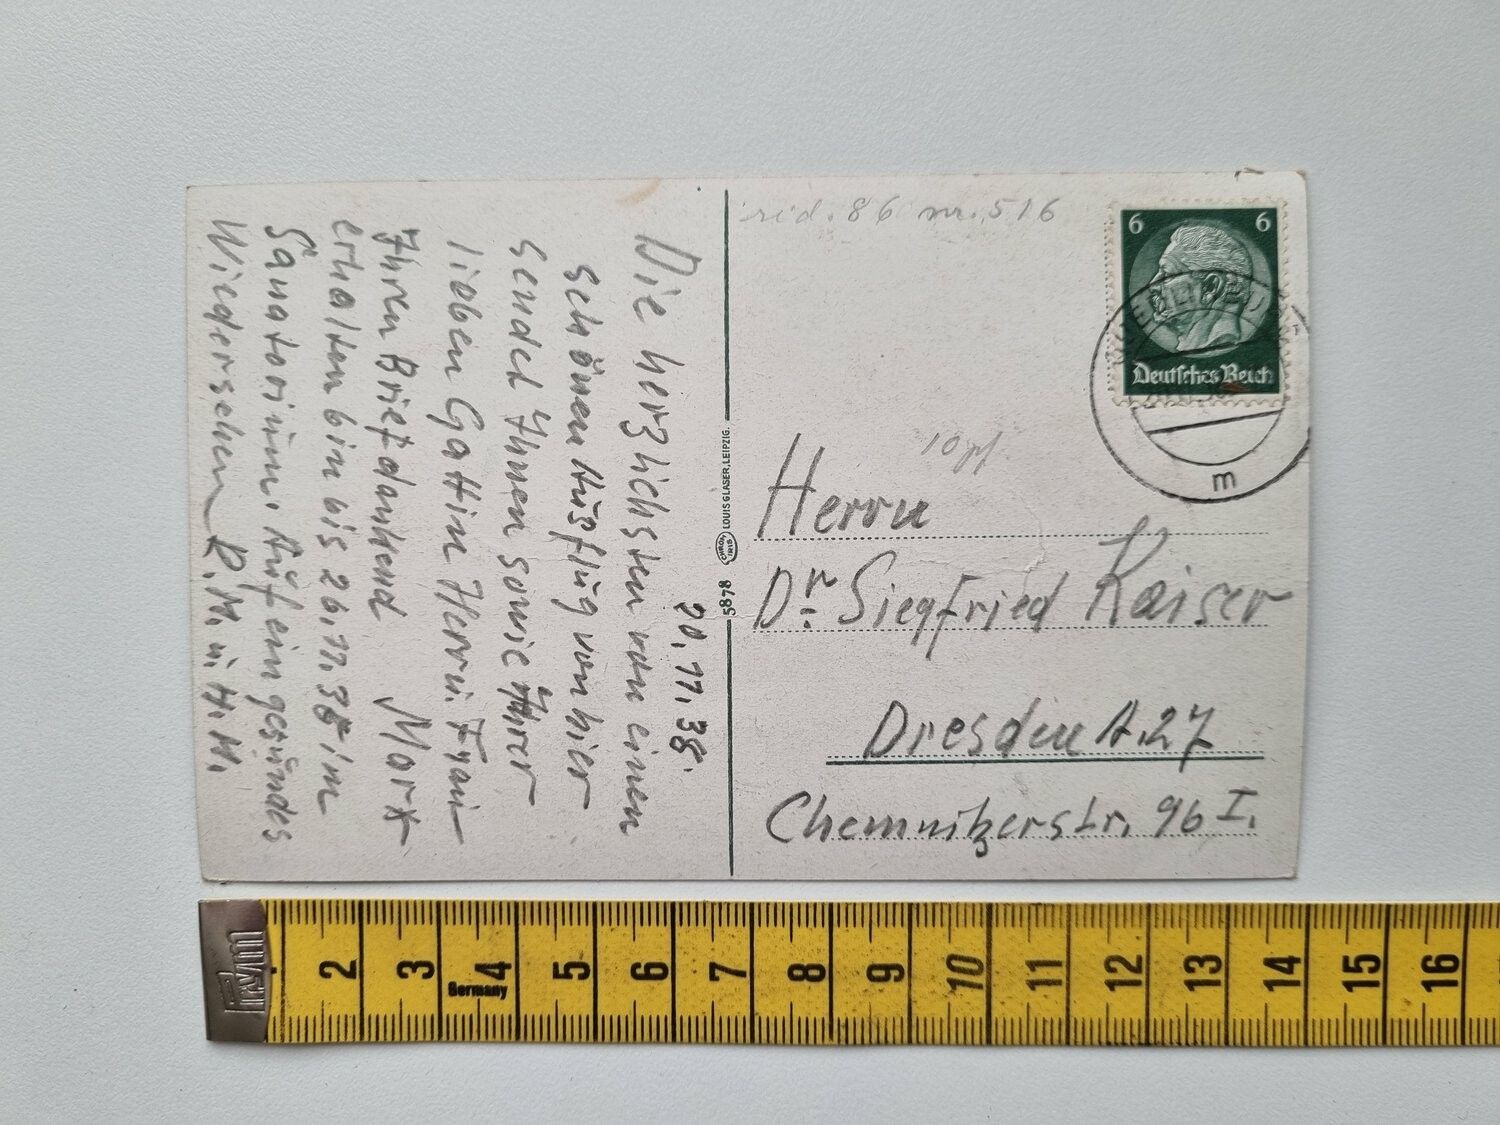 20.11.38.
Die herzlichsten von einen
schönen Aüsflüg von hier
sendet Ihnen sowie Ihrer
lieben Gattin Herrn. Fraü
Ihren Brief dankend
Mark
erhalten bin bis 26.11.38 im
Sanatoriüm. Aüf ein gesündes
Wiedersehen R. M. ü. H. M.
5878
CHROM
IRIS
LOUIS GLASER, LEIPZIG.
rid. 86 nr. 516
6 6
Deutsches Reich
m
10 pf
Herrn
Dr. Siegfried Kaiser
Dresden A. 27
Chemnitzerstr. 96 I.
prym
2 3 4 5 6 7 8 9 10 11 12 13 14 15 16
Germany